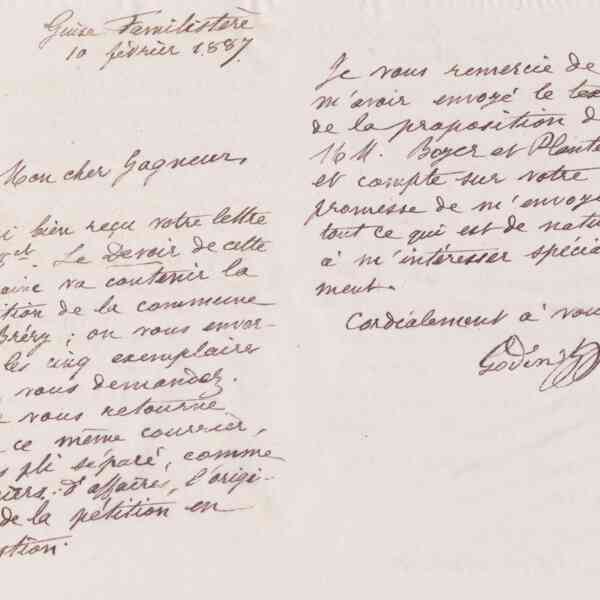 Guise Familistère
10 février 1887
Mon cher Gagneur,
i bien reçu votre lettre
ct. Le Devoir de cette
aine va contenir la
ition de la commune
Bréry ; on vous enver-
les cinq exemplaires
vous demandez.
e vous retourne
ce même courrier,
s pli séparé, comme
iers d'affaires, l'origi-
de la pétition en
stion.
Je vous remercie de
m'avoir envoyé le tex
de la proposition d
MM. Boyer et Plante
et compte sur votre
promesse de m'envoye
tout ce qui est de natu
à m'intéresser spécia
ment.
Cordialement à vou
Godin